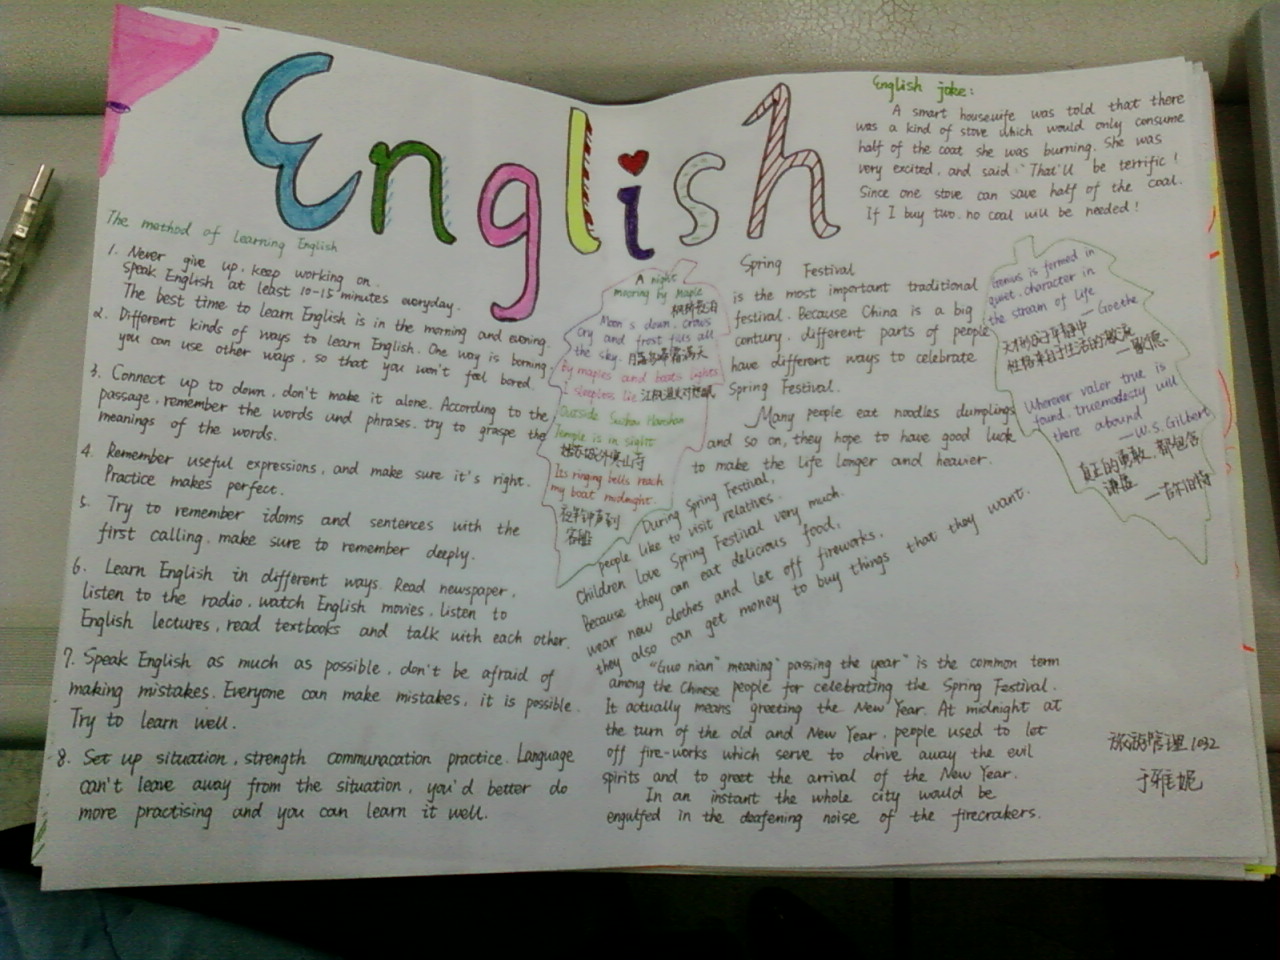 English
English joke:
A smart housewife was told that there
was a kind of stove which would only consume
half of the coat she was burning. She was
very excited, and said: "That'll be terrific!
Since one stove can save half of the coal.
If I buy two, no coal will be needed!
The method of learning English
1. Never give up, keep working on.
Speak English at least 10-15 minutes everyday.
The best time to learn English is in the morning and evening.
2. Different kinds of ways to learn English. One way is borning
you can use other ways, so that you won't feel bored.
3. Connect up to down, don't make it alone. According to the
passage, remember the words und phrases, try to graspe the
meanings of the words.
4. Remember useful expressions, and make sure it's right.
Practice makes perfect.
5. Try to remember idoms and sentences with the
first calling, make sure to remember deeply.
6. Learn English in different ways. Read newspaper,
listen to the radio, watch English movies, listen to
English lectures, read textbooks and talk with each other.
7. Speak English as much as possible, don't be afraid of
making mistakes. Everyone can make mistakes, it is possible.
Try to learn well.
8. Set up situation, strength communacation practice. Language
can't leave away from the situation, you'd better do
more practising and you can learn it well.
A night
mooring by Maple
枫桥夜泊
Moon's down, crows
cry and frost fills all
the sky. 月落乌啼霜满天
By maples and boats lights
I sleepless lie 江枫渔火对愁眠
Outside Suzhou Hanshan
Temple is in sight
姑苏城外寒山寺
Its ringing bells reach
my boat midnight.
夜半钟声到
客船
Spring Festival
is the most important traditional
festival. Because China is a big
century, different parts of people
have different ways to celebrate
Spring Festival.
Many people eat noodles dumplings
and so on, they hope to have good luck
to make the life longer and heavier.
During Spring Festival,
people like to visit relatives.
Children love Spring Festival very much.
Because they can eat delicious food,
wear new clothes and let off fireworks.
they also can get money to buy things that they want.
"Guo nian" meaning "passing the year" is the common term
among the Chinese people for celebrating the Spring Festival.
It actually means greeting the New Year. At midnight at
the turn of the old and New Year, people used to let
off fire-works which serve to drive away the evil
spirits and to greet the arrival of the New Year.
In an instant the whole city would be
engulfed in the deafening noise of the firecrakers.
Genius is formed in
quiet, character in
the stream of life
— Goethe
天才形成于平静中
性格来自于生活的激流
— 歌德
Wherever valor true is
found, truemodesty will
there abound
— W.S. Gilbert
真正的勇敢，都包含
谦虚
— 吉尔伯特
旅游管理1032
于雅妮